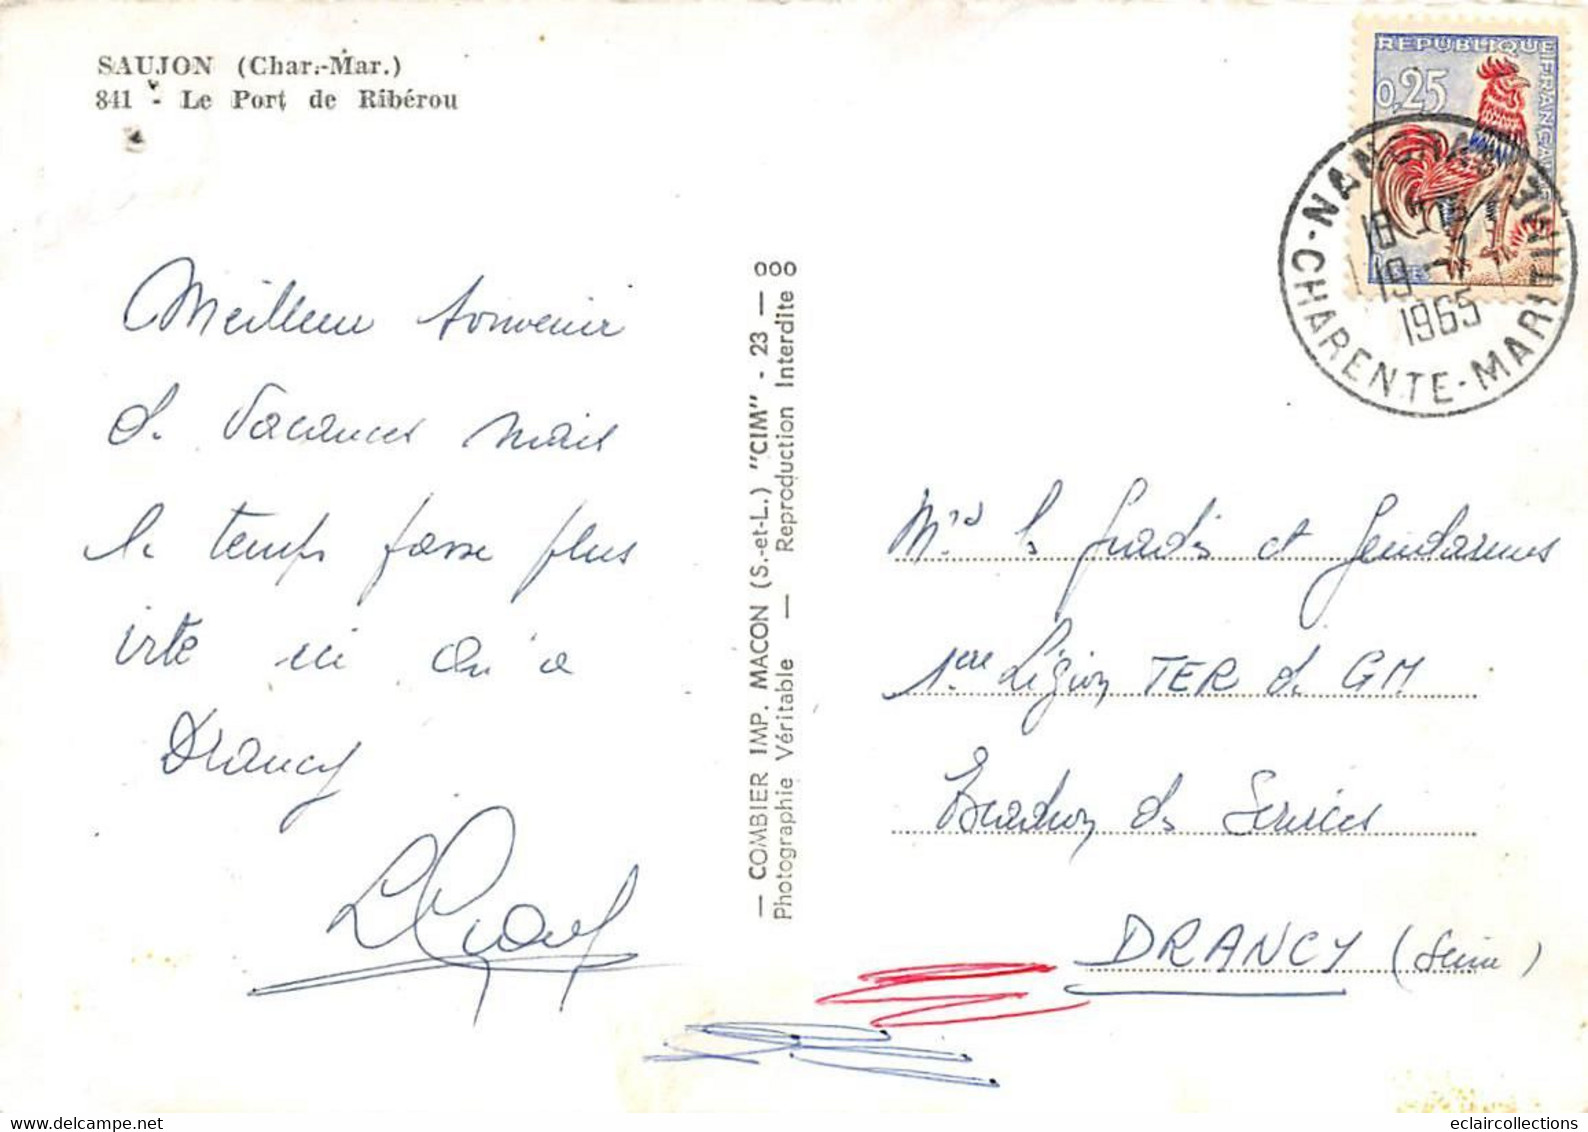 SAUJON (Char.-Mar.)
841 - Le Port de Ribérou
REPUBLIQUE FRANÇAISE
0,25
NANCRAS
18 H
19 -
1965
CHARENTE-MARITIME
Meilleur souvenir
de vacances mais
le temps passe plus
vite ici qu'a
Drancy
— COMBIER IMP. MACON (S.-et-L.) "CIM" - 23 — 000
Photographie Véritable — Reproduction Interdite
Mrs les Gradés et Gendarmes
1ere Légion TER de GM
Escadron des Services
DRANCY (Seine)
eclaircollections